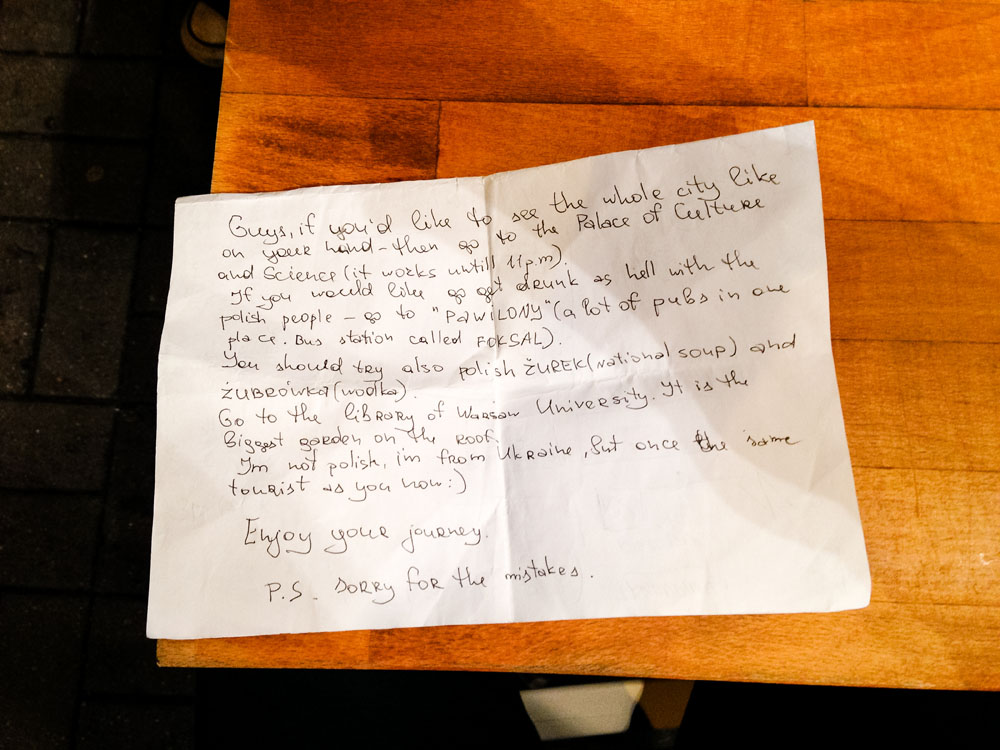 Guys, if you'd like to see the whole city like
on your hand - then go to the Palace of Culture
and Science (it works untill 11 p.m).
If you would like go get drunk as hell with the
polish people - go to "PAWILONY" (a lot of pubs in one
place. Bus station called FOKSAL).
You should try also polish ŻUREK (national soup) and
ŻUBRÓWKA (wodka).
Go to the library of Warsaw University. It is the
Biggest garden on the roof.
I'm not polish, i'm from Ukraine, but once the same
tourist as you now :)
Enjoy your journey.
P.S. sorry for the mistakes.